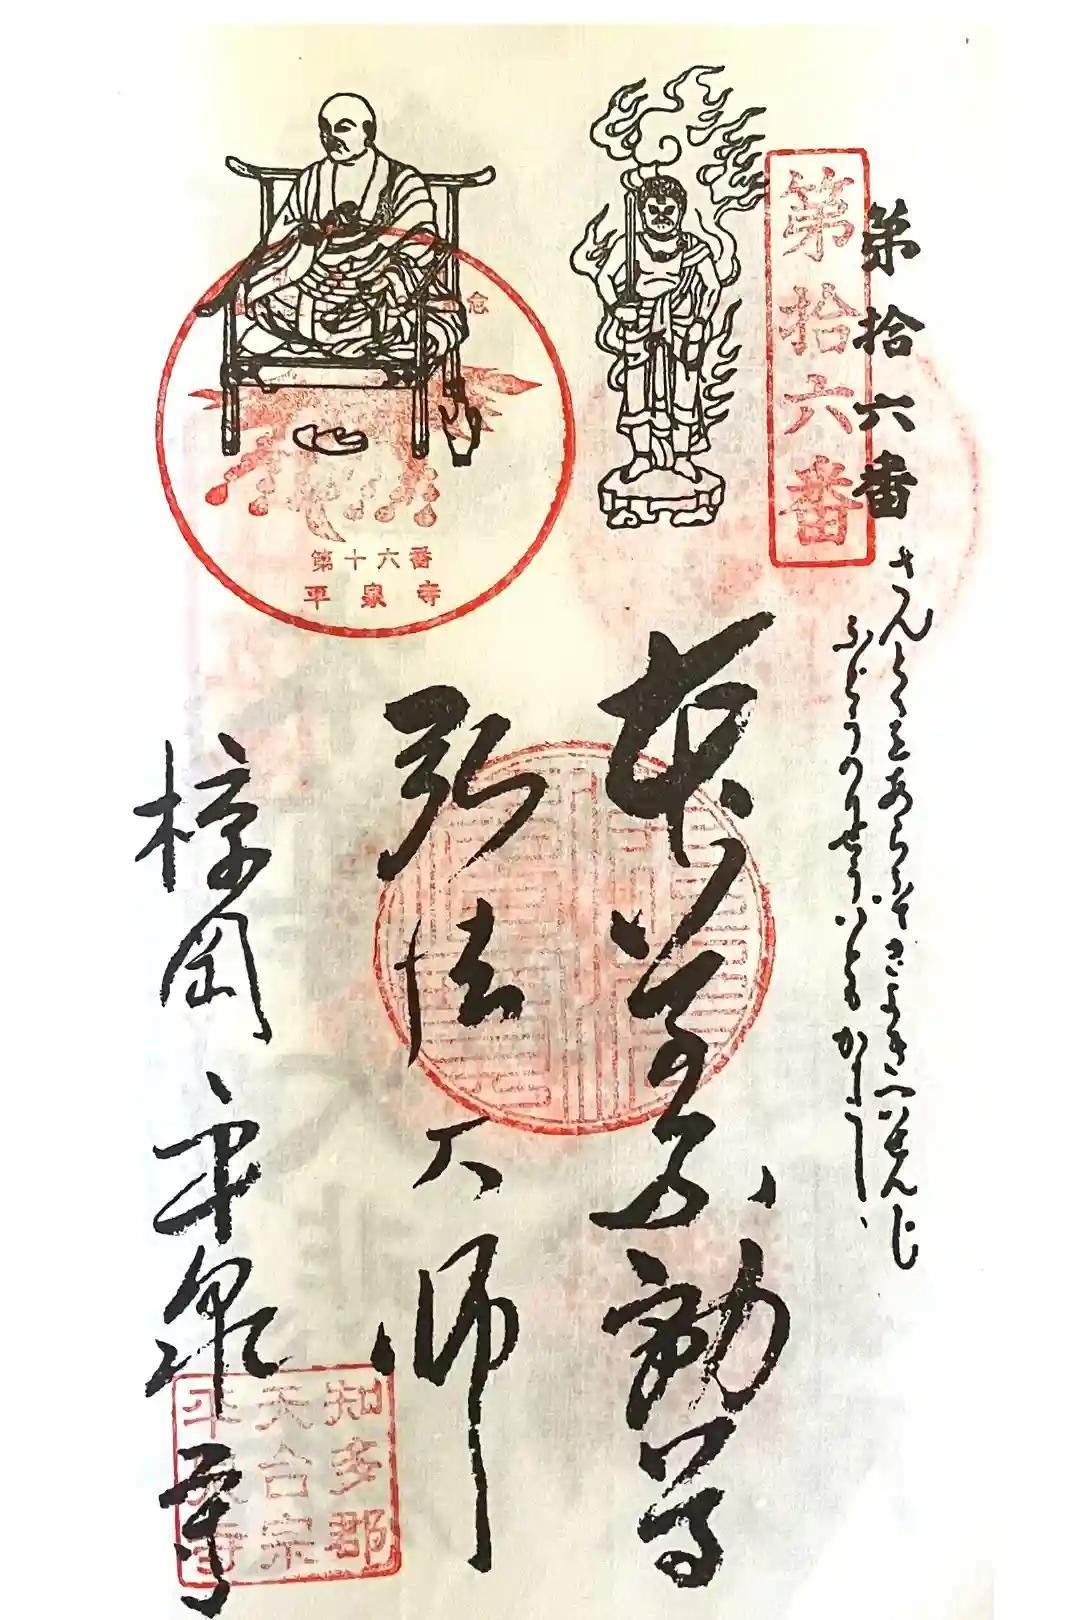 第拾六番
第拾六番
さんとくをあらはすきよきへいせんじ
ふどうのりやくいともかしこし
本尊不動尊
弘法大師
椋岡平泉寺
念
第十六番
平泉寺
知多郡
天台宗
平泉寺